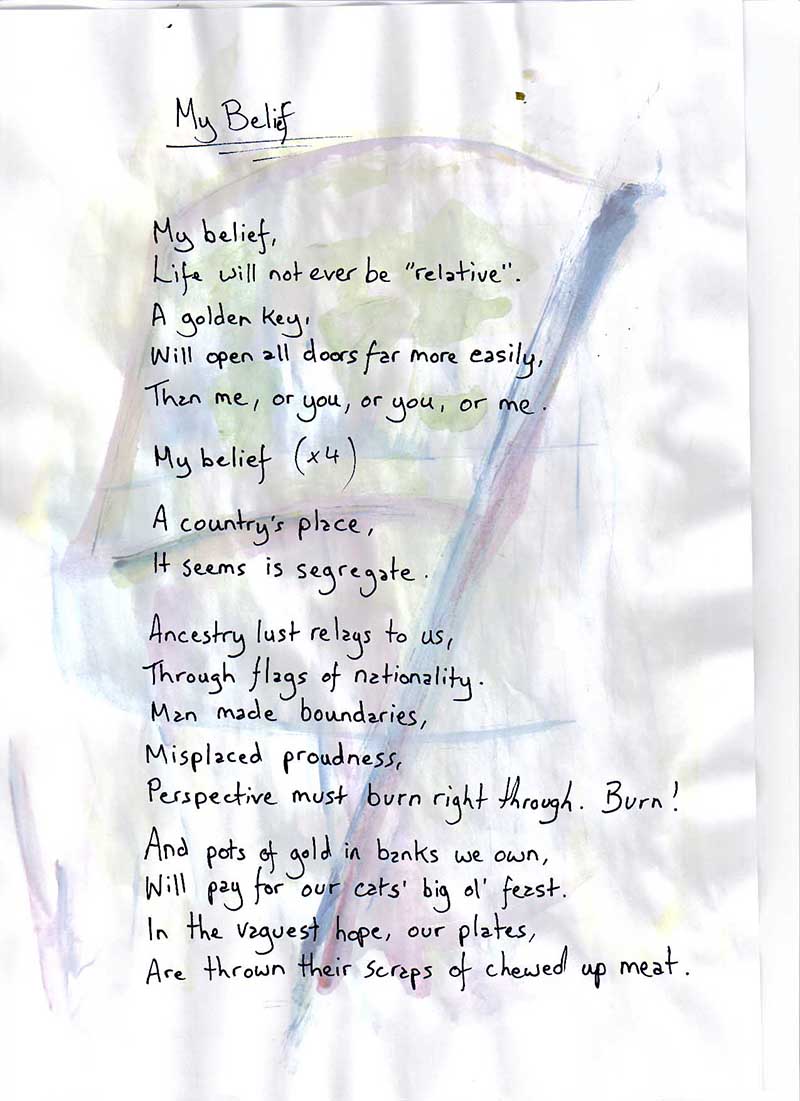 My Belief
My belief,
Life will not ever be "relative".
A golden key,
Will open all doors far more easily,
Than me, or you, or you, or me.
My belief (x4)
A country's place,
It seems is segregate.
Ancestry lust relays to us,
Through flags of nationality.
Man made boundaries,
Misplaced proudness,
Perspective must burn right through. Burn!
And pots of gold in banks we own,
Will pay for our cats' big ol' feast.
In the vaguest hope, our plates,
Are thrown their scraps of chewed up meat.